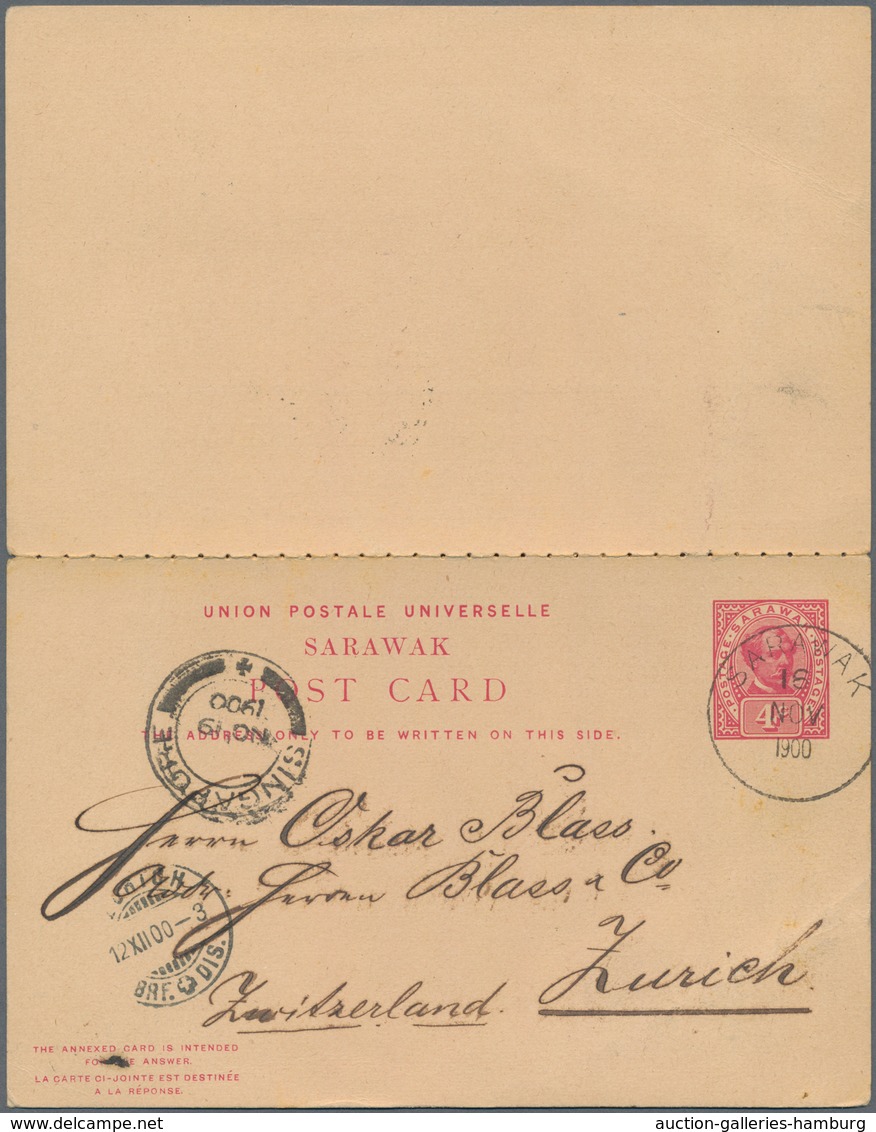 UNION POSTALE UNIVERSELLE
SARAWAK
POST CARD
THE ADDRESS ONLY TO BE WRITTEN ON THIS SIDE.
POSTAGE · SARAWAK · POSTAGE
4
SARAWAK
16
NOV
1900
SINGAPORE
NO 19
1900
Herrn Oskar Blass.
Herren Blass & Co
Zurich
Zwitzerland.
ZÜRICH
12 XII 00 – 3
BRF. DIS.
THE ANNEXED CARD IS INTENDED
FOR THE ANSWER.
LA CARTE CI-JOINTE EST DESTINÉE
A LA RÉPONSE.
auction-galleries-hamburg